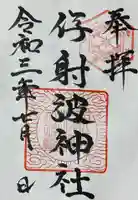 奉拝
伊射波神社
令和三年十月 日